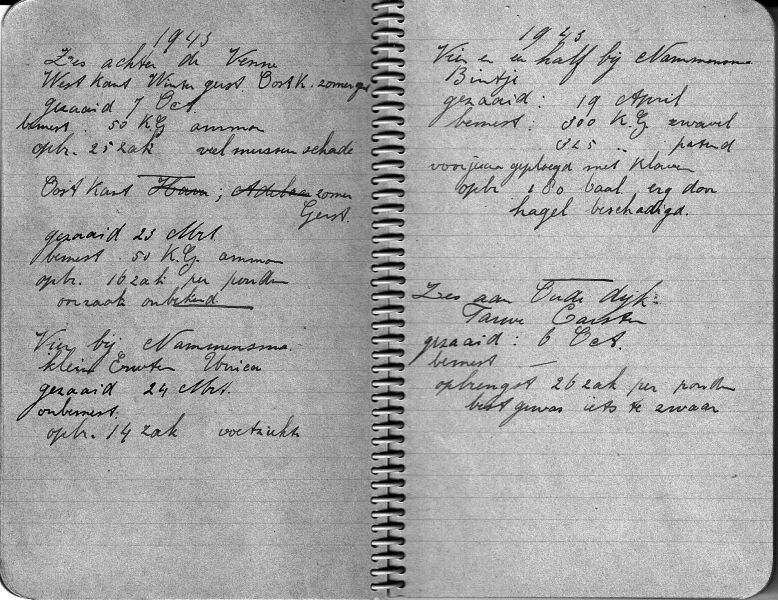 1943
Zes achter de Venne
West kant Winter gerst Oost K. zomerger
gezaaid 7 Oct.
bemest. 50 K.G. ammon
opbr. 25 zak veel mussen schade
Oost kant Haver ; Adelaar zomer
Gerst.
gezaaid 23 Mrt.
bemest. 50 K.G. ammon
opbr. 16 zak per pondem
oorzaak onbekend
Vier bij Nammensma.
klein Erwten Unica
gezaaid 24 Mrt.
onbemest.
opbr. 14 zak voetziekte
1943
Vier en en half bij Nammensma
Bintje
gezaaid : 19 April
bemest : 300 K.G. zwavel
325 " patend
voorjaar geploegd met Klaver
opbr 180 baal erg door
hagel beschadigd.
Zes aan Oude dijk.
Tarwe Carsten
gezaaid : 6 Oct.
bemest —
opbrengst 26 zak per pondem
best gewas iets te zwaar